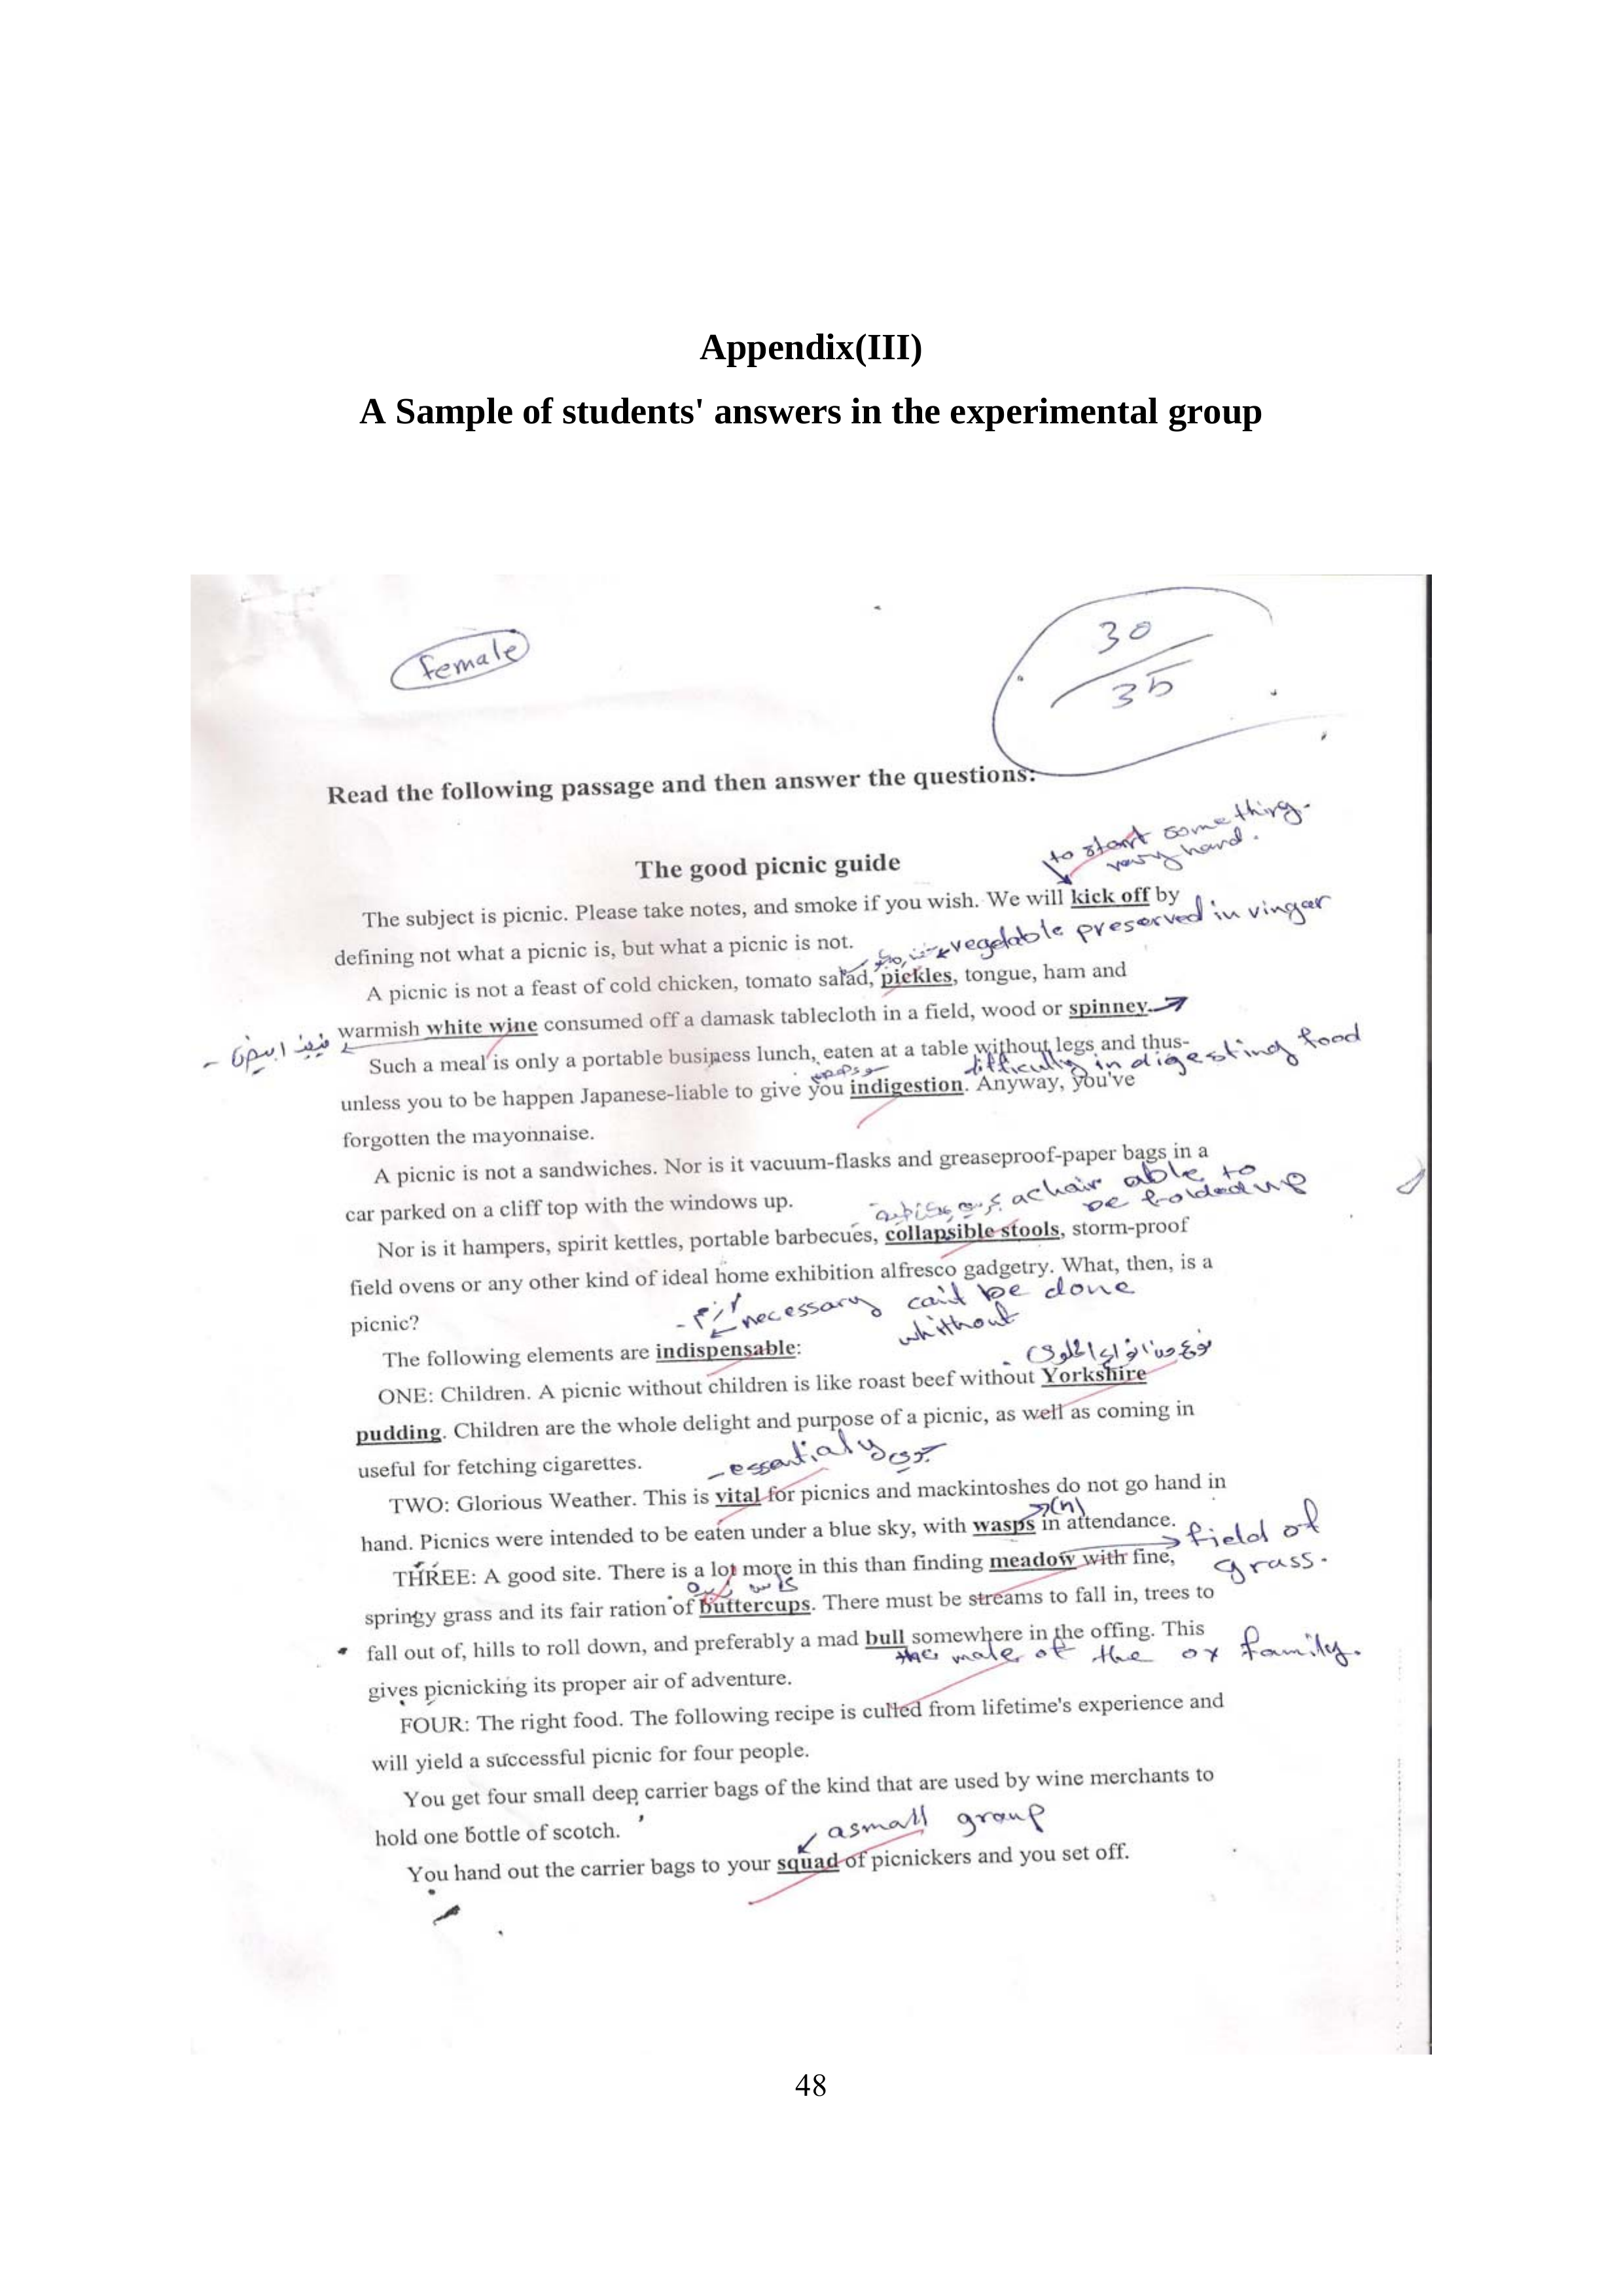 Appendix(III)
A Sample of students' answers in the experimental group
female
30
35
Read the following passage and then answer the questions:
to start something.
very hard.
The good picnic guide
The subject is picnic. Please take notes, and smoke if you wish. We will kick off by
vegetable preserved in vingar
defining not what a picnic is, but what a picnic is not.
A picnic is not a feast of cold chicken, tomato salad, pickles, tongue, ham and
warmish white wine consumed off a damask tablecloth in a field, wood or spinney.
نبيذ ابيض -
Such a meal is only a portable business lunch, eaten at a table without legs and thus-
difficulty in digesting food
unless you to be happen Japanese-liable to give you indigestion. Anyway, you've
forgotten the mayonnaise.
A picnic is not a sandwiches. Nor is it vacuum-flasks and greaseproof-paper bags in a
car parked on a cliff top with the windows up.
a chair able to
be folded up
Nor is it hampers, spirit kettles, portable barbecues, collapsible stools, storm-proof
field ovens or any other kind of ideal home exhibition alfresco gadgetry. What, then, is a
picnic?
- لازم necessary can't be done
whithout
The following elements are indispensable:
نوع من انواع الحلوى .
ONE: Children. A picnic without children is like roast beef without Yorkshire
pudding. Children are the whole delight and purpose of a picnic, as well as coming in
useful for fetching cigarettes.
- essentialy
TWO: Glorious Weather. This is vital for picnics and mackintoshes do not go hand in
(n)
hand. Picnics were intended to be eaten under a blue sky, with wasps in attendance.
field of
grass.
THREE: A good site. There is a lot more in this than finding meadow with fine,
springy grass and its fair ration of buttercups. There must be streams to fall in, trees to
fall out of, hills to roll down, and preferably a mad bull somewhere in the offing. This
the male of the ox family.
gives picnicking its proper air of adventure.
FOUR: The right food. The following recipe is culled from lifetime's experience and
will yield a successful picnic for four people.
You get four small deep carrier bags of the kind that are used by wine merchants to
hold one bottle of scotch.
asmall group
You hand out the carrier bags to your squad of picnickers and you set off.
48